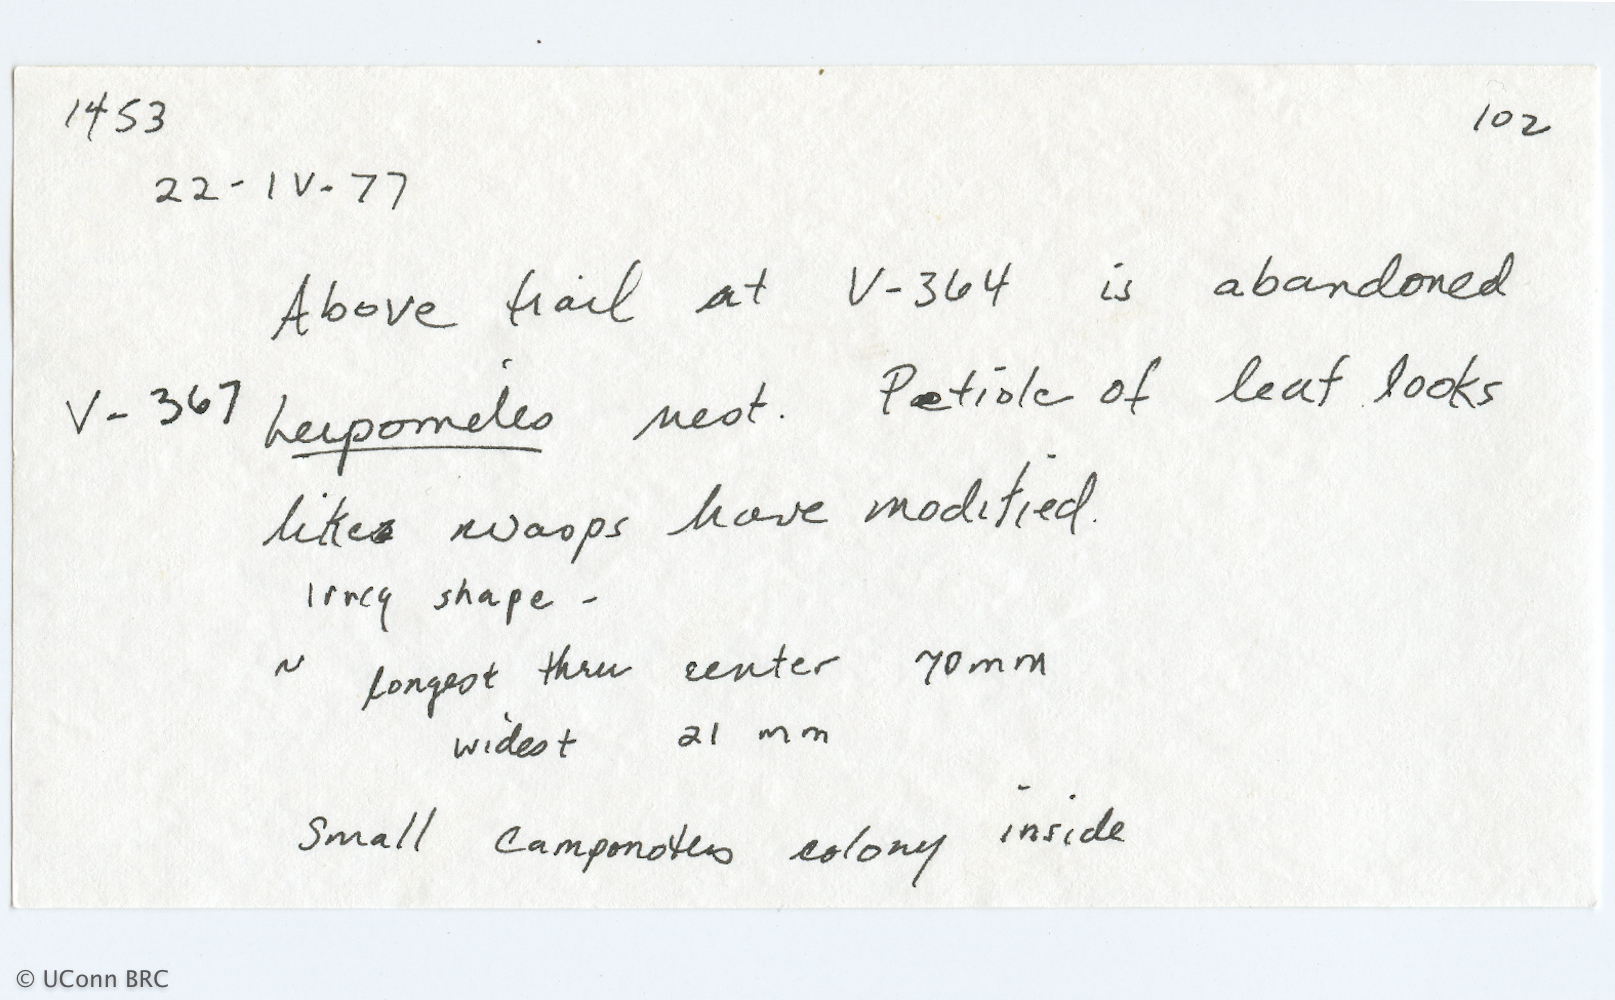 1453 102
22-IV-77
Above trail at V-364 is abandoned
V-367 Leipomeles nest. Petiole of leaf looks
like wasps have modified.
Irreg shape -
~ longest thru center 70mm
widest 21 mm
Small Camponotus colony inside
© UConn BRC